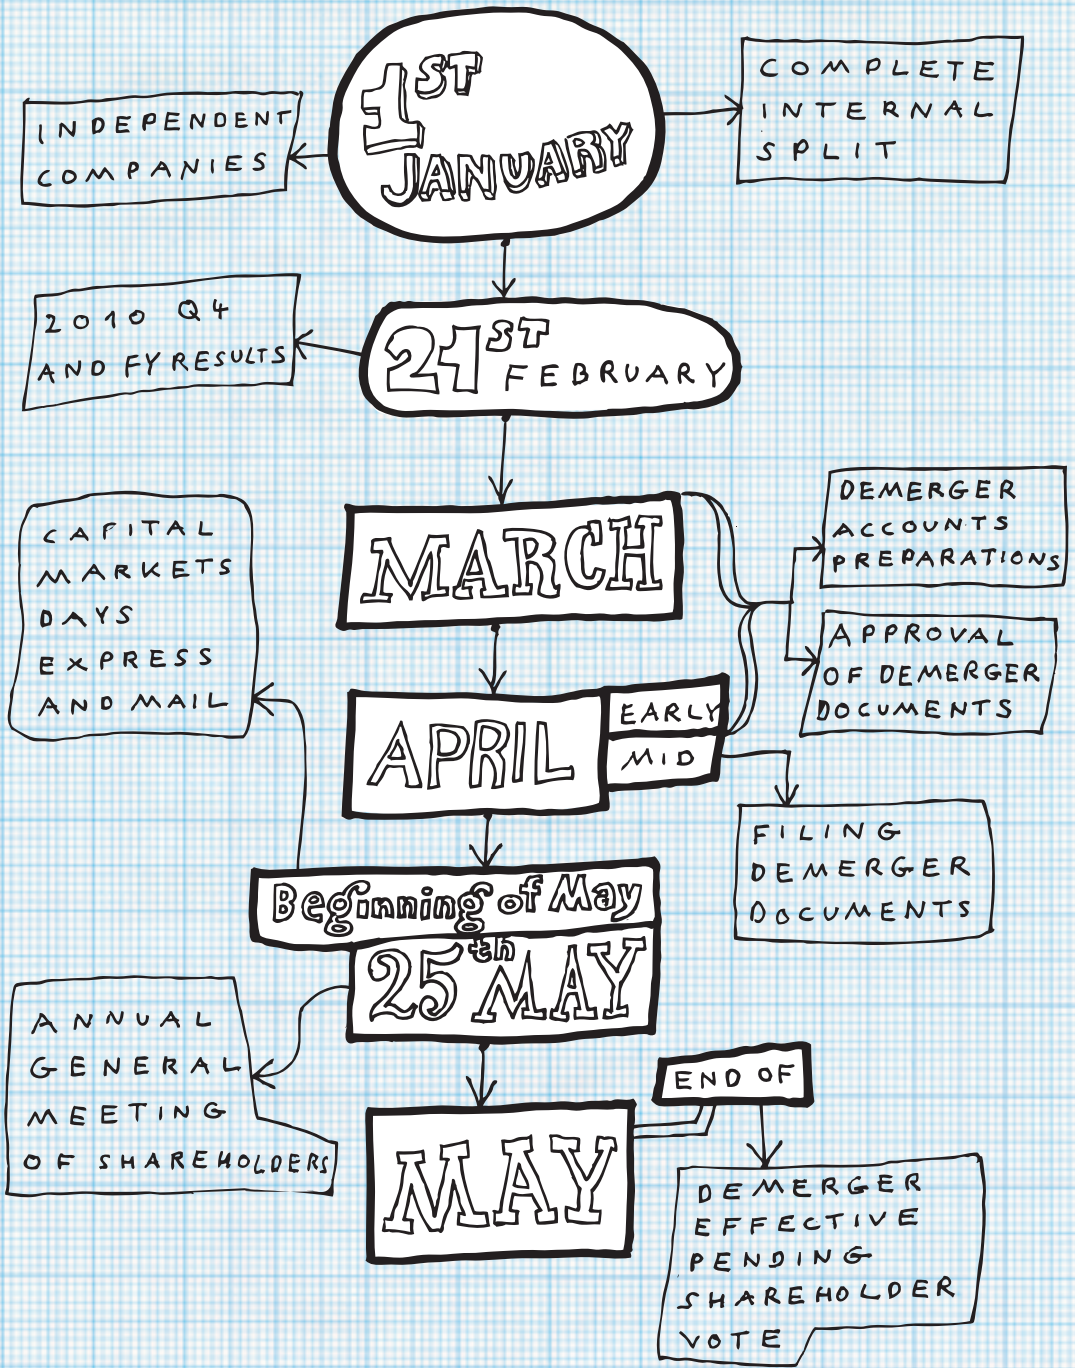 1ST
JANUARY
INDEPENDENT
COMPANIES
COMPLETE
INTERNAL
SPLIT
21ST
FEBRUARY
2010 Q4
AND FY RESULTS
MARCH
DEMERGER
ACCOUNTS
PREPARATIONS
APPROVAL
OF DEMERGER
DOCUMENTS
APRIL
EARLY
MID
FILING
DEMERGER
DOCUMENTS
Beginning of May
CAPITAL
MARKETS
DAYS
EXPRESS
AND MAIL
25th MAY
ANNUAL
GENERAL
MEETING
OF SHAREHOLDERS
END OF
MAY
DEMERGER
EFFECTIVE
PENDING
SHAREHOLDER
VOTE